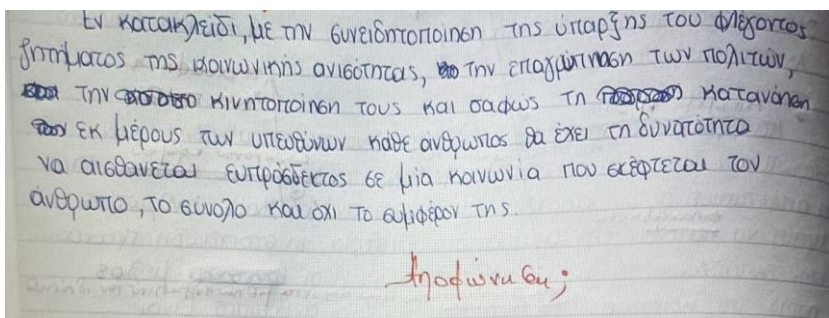 Εν κατακλείδι, με την συνειδητοποίηση της ύπαρξης του φλέγοντος
ζητήματος της κοινωνικής ανισότητας, την επαγρύπνηση των πολιτών,
την κινητοποίηση τους και σαφώς τη κατανόηση
εκ μέρους των υπευθύνων κάθε άνθρωπος θα έχει τη δυνατότητα
να αισθάνεται ευπρόσδεκτος σε μία κοινωνία που σκέφτεται τον
άνθρωπο, το σύνολο και όχι το συμφέρον της.
Αποφώνηση;